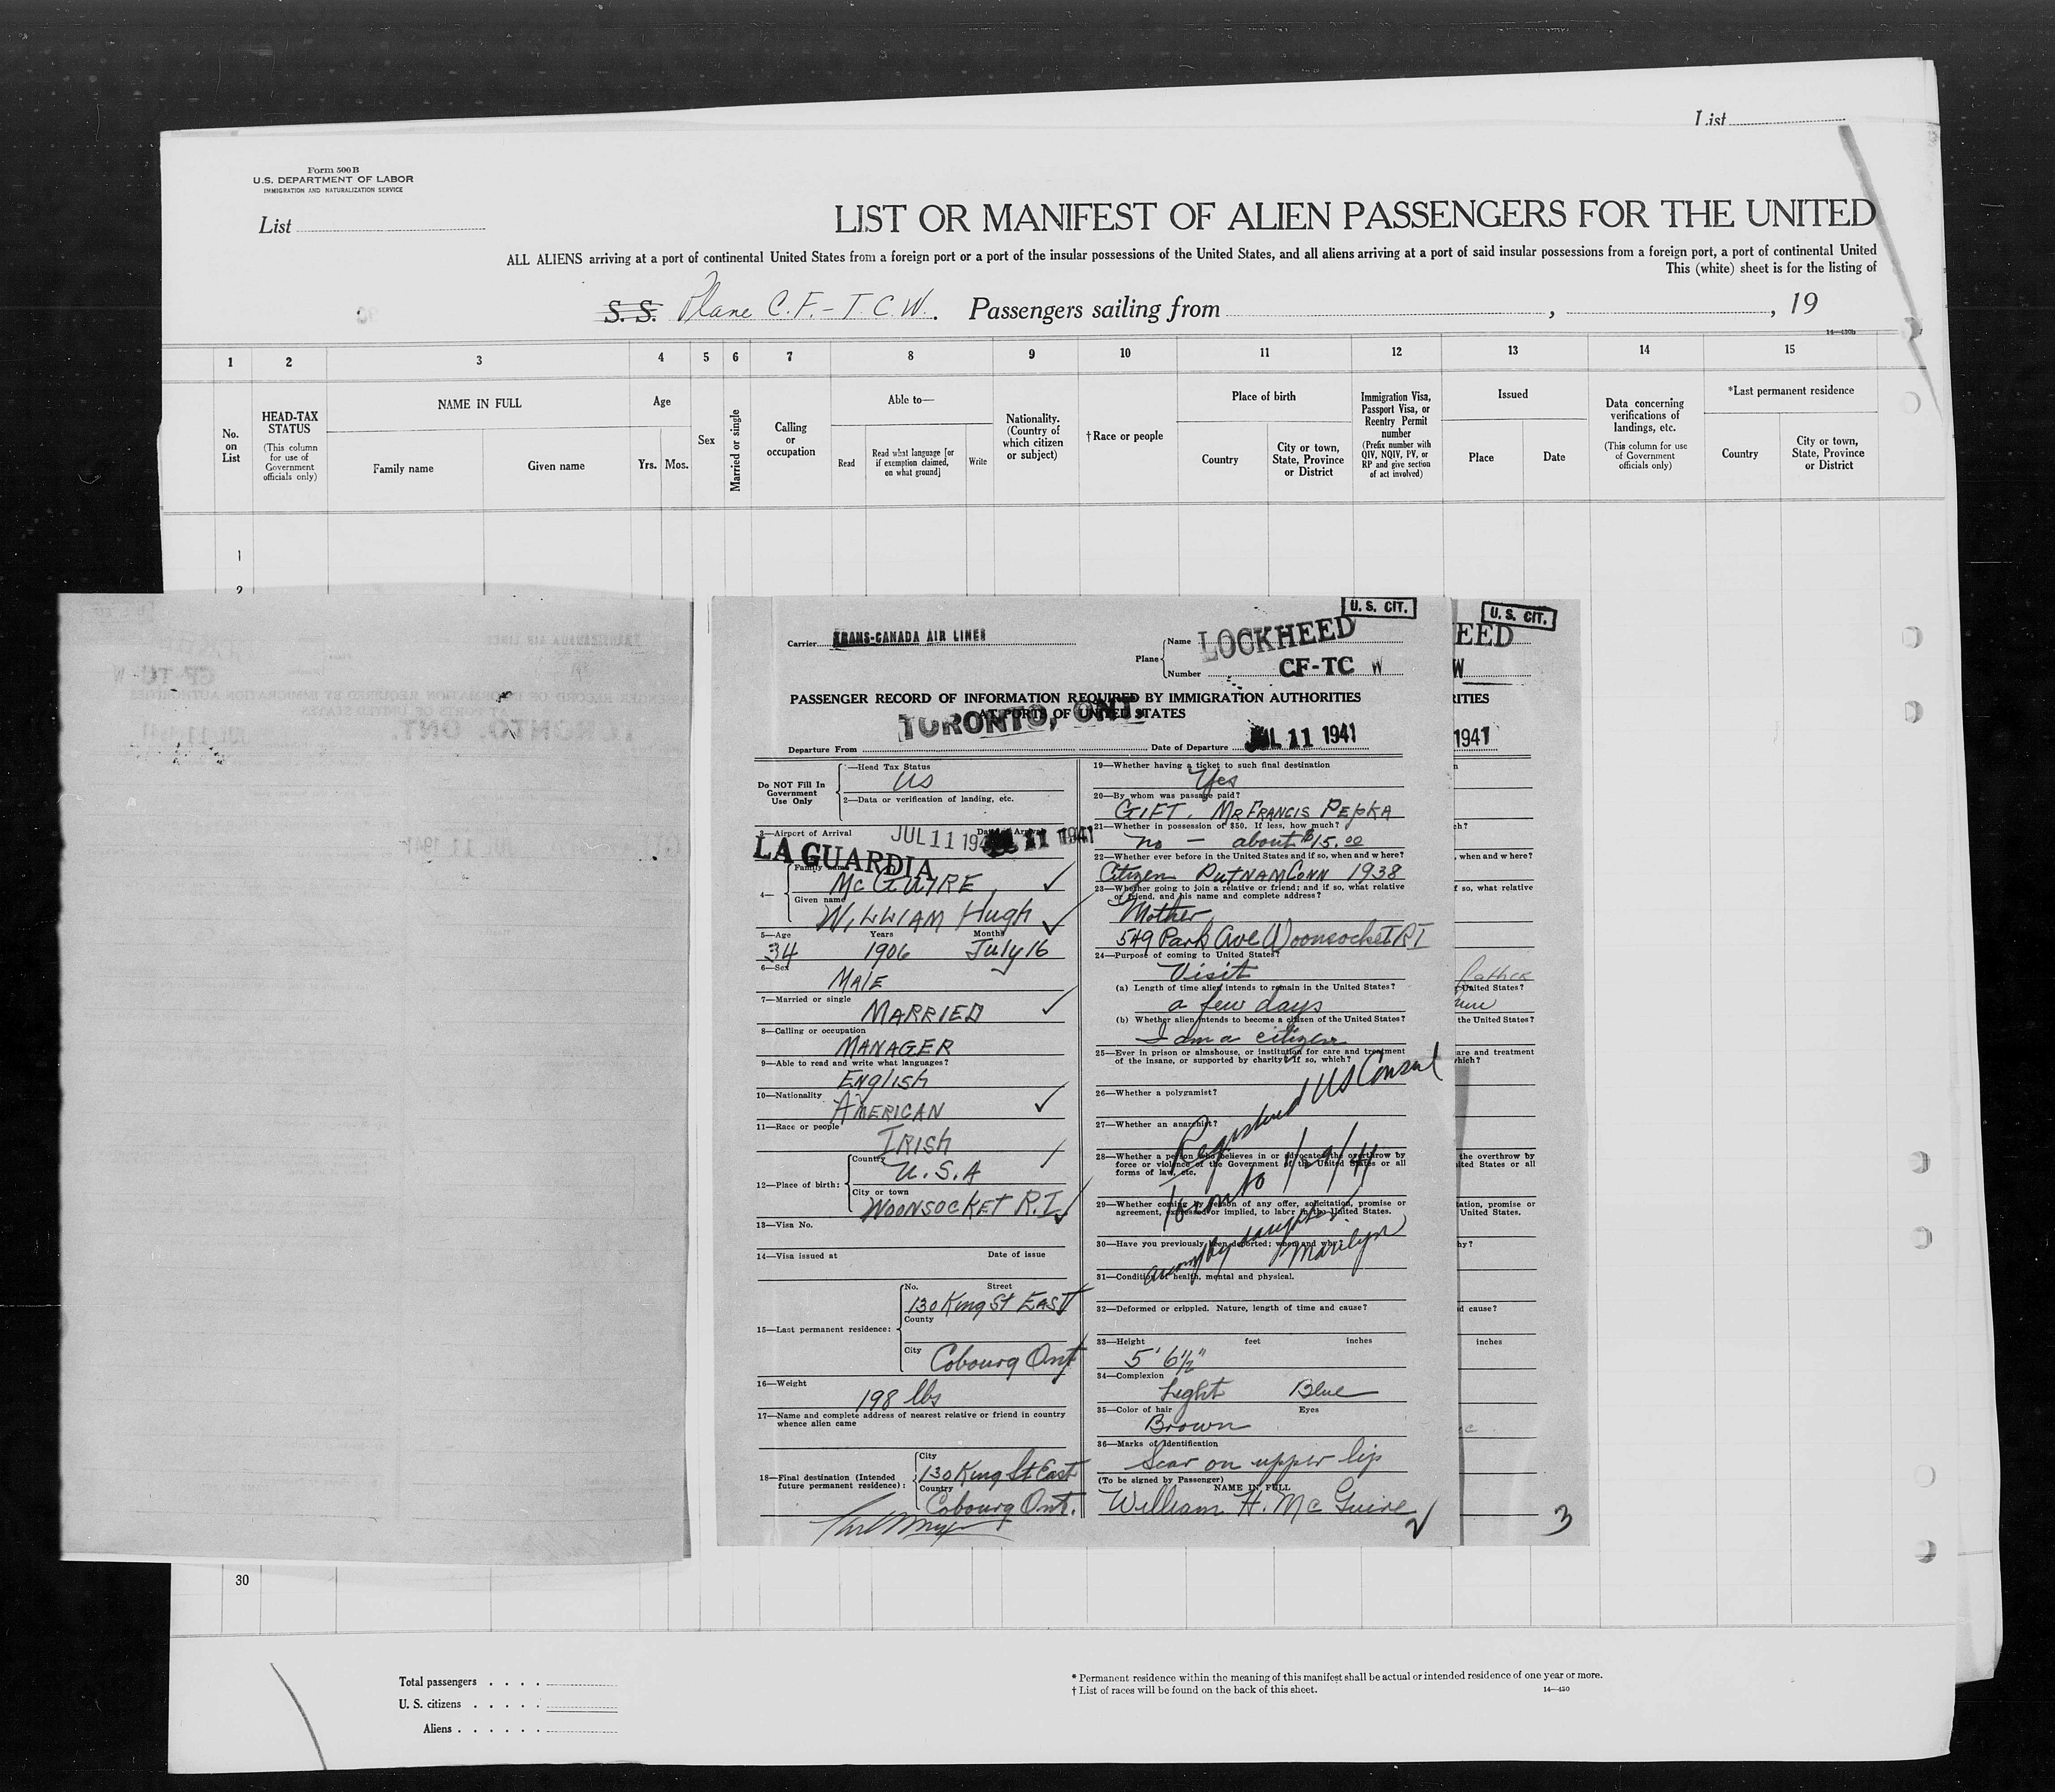 List
Form 500 B
U.S. DEPARTMENT OF LABOR
IMMIGRATION AND NATURALIZATION SERVICE
List
LIST OR MANIFEST OF ALIEN PASSENGERS FOR THE UNITED
ALL ALIENS arriving at a port of continental United States from a foreign port or a port of the insular possessions of the United States, and all aliens arriving at a port of said insular possessions from a foreign port, a port of continental United
This (white) sheet is for the listing of
S. S. Plane C.F.-T.C.W. Passengers sailing from , , 19
14—430b
1 2 3 4 5 6 7 8 9 10 11 12 13 14 15
No. on List
HEAD-TAX STATUS
(This column for use of Government officials only)
NAME IN FULL
Family name
Given name
Age
Yrs. Mos.
Sex
Married or single
Calling or occupation
Able to—
Read
Read what language [or if exemption claimed, on what ground]
Write
Nationality. (Country of which citizen or subject)
†Race or people
Place of birth
Country
City or town, State, Province or District
Immigration Visa, Passport Visa, or Reentry Permit number
(Prefix number with QIV, NQIV, PV, or RP and give section of act involved)
Issued
Place
Date
Data concerning verifications of landings, etc.
(This column for use of Government officials only)
*Last permanent residence
Country
City or town, State, Province or District
1
2
U. S. CIT.
Carrier TRANS-CANADA AIR LINES
Plane
Name LOCKHEED
Number CF-TC W
PASSENGER RECORD OF INFORMATION REQUIRED BY IMMIGRATION AUTHORITIES
AT PORTS OF UNITED STATES
Departure From TORONTO, ONT.
Date of Departure JUL 11 1941
Do NOT Fill In Government Use Only
1—Head Tax Status
US
2—Data or verification of landing, etc.
3—Airport of Arrival Date of Arrival
LA GUARDIA JUL 11 1941
4—
Family name
McGUIRE,
Given name
WILLIAM Hugh
5—Age Years Months
34 1906 July 16
6—Sex
MALE
7—Married or single
MARRIED
8—Calling or occupation
MANAGER
9—Able to read and write what languages?
ENGLISH
10—Nationality
AMERICAN
11—Race or people
IRISH
12—Place of birth:
Country
U.S.A
City or town
WOONSOCKET R.I.
13—Visa No.
14—Visa issued at Date of issue
15—Last permanent residence:
No. Street
130 King St EAST
County
City
Cobourg Ont
16—Weight
198 lbs
17—Name and complete address of nearest relative or friend in country whence alien came
18—Final destination (Intended future permanent residence):
City
130 King St East
Country
Cobourg Ont.
19—Whether having a ticket to such final destination
Yes
20—By whom was passage paid?
GIFT. MR FRANCIS PEPKA
21—Whether in possession of $50. If less, how much?
no — about $15.00
22—Whether ever before in the United States and if so, when and where?
Citizen PUTNAM CONN 1938
23—Whether going to join a relative or friend; and if so, what relative or friend, and his name and complete address?
Mother
549 Park Ave Woonsocket RI
24—Purpose of coming to United States?
Visit
(a) Length of time alien intends to remain in the United States?
a few days
(b) Whether alien intends to become a citizen of the United States?
I am a citizen
25—Ever in prison or almshouse, or institution for care and treatment of the insane, or supported by charity? If so, which?
26—Whether a polygamist?
27—Whether an anarchist?
28—Whether a person who believes in or advocates the overthrow by force or violence of the Government of the United States or all forms of law, etc.
29—Whether coming by reason of any offer, solicitation, promise or agreement, expressed or implied, to labor in the United States.
30—Have you previously been deported; when and why?
31—Condition of health, mental and physical.
Registered US Consul
Toronto 1/29/41
accompd by daughter
Marilyn
32—Deformed or crippled. Nature, length of time and cause?
33—Height feet inches
5' 6½"
34—Complexion
Light Blue
35—Color of hair Eyes
Brown
36—Marks of Identification
Scar on upper lip
(To be signed by Passenger)
NAME IN FULL
William H. McGuire
2
U. S. CIT.
EED
W
RITIES
1941
n
ch?
, when and where?
f so, what relative
United States?
the United States?
are and treatment
which?
the overthrow by
ited States or all
tation, promise or
United States.
hy?
d cause?
inches
3
30
Total passengers
U. S. citizens
Aliens
* Permanent residence within the meaning of this manifest shall be actual or intended residence of one year or more.
† List of races will be found on the back of this sheet.
14—430